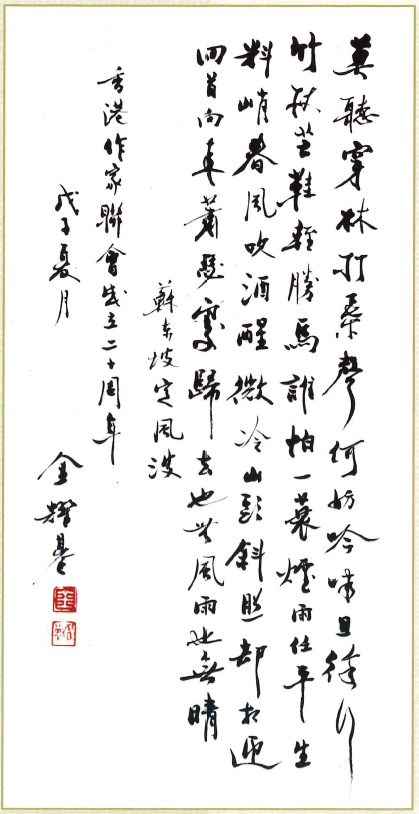 莫聽穿林打葉聲何妨吟嘯且徐行
竹杖芒鞋輕勝馬誰怕一蓑煙雨任平生
料峭春風吹酒醒微冷山頭斜照却相迎
回首向來蕭瑟處歸去也無風雨也無晴
蘇東坡定風波
香港作家聯會成立二十周年
戊子夏月
金耀基